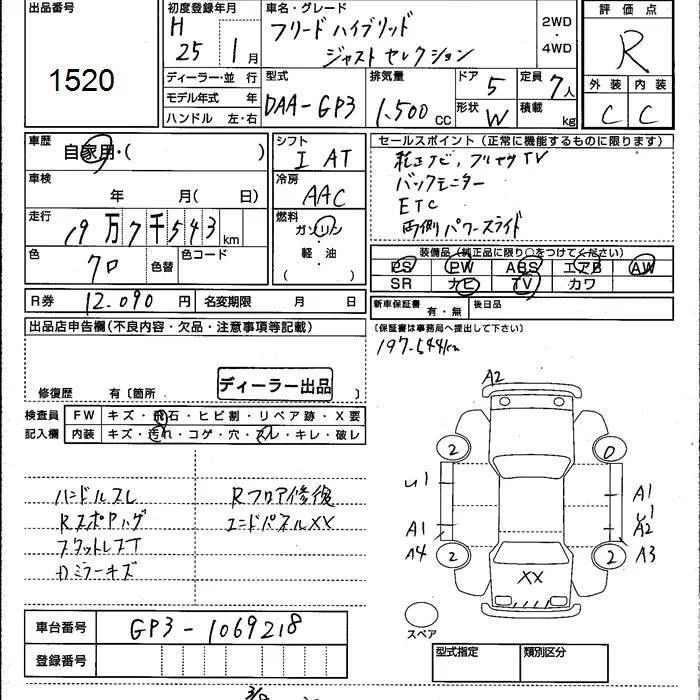 出品番号
1520
初度登録年月
H
25 1月
車名・グレード
フリードハイブリッド
ジャストセレクション
2WD
・
4WD
評価点
R
外装 内装
C C
ディーラー・並 行
モデル年式 年
ハンドル 左・右
型式
DAA-GP3
排気量
1,500 CC
ドア 5
形状 W
定員 7人
積載 kg
車歴
自家用・( )
車検
年 月(日)
走行
19万7千543km
色
クロ
色替
色コード
シフト
I AT
冷房
AAC
燃料
ガソリン
・
軽・油
( )
セールスポイント (正常に機能するものに限ります)
純正ナビ, フルセグTV
バックモニター
ETC
両側パワースライド
装備品 (純正品に限り○をつけてください)
PS PW ABS エアB AW
SR ナビ TV カワ
R券 12.090円
名変期限 月 日
新車保証書 有・無
後日品
(保証書は事務局へ提出して下さい)
197-544km
出品店申告欄(不良内容・欠品・注意事項等記載)
ディーラー出品
修復歴 有〔箇所 〕
検査員
記入欄
FW キズ・飛石・ヒビ割・リペア跡・X要
内装 キズ・汚れ・コゲ・穴・スレ・キレ・破レ
ハンドルスレ
Rフロア修復
エンドパネルXX
スタットレスT
ミラーキズ
A2
2 0
U1 A1
U1
A1 A2
A4 2 2 A3
XX
スペア
車台番号 GP3-1069218
登録番号
型式指定 類別区分